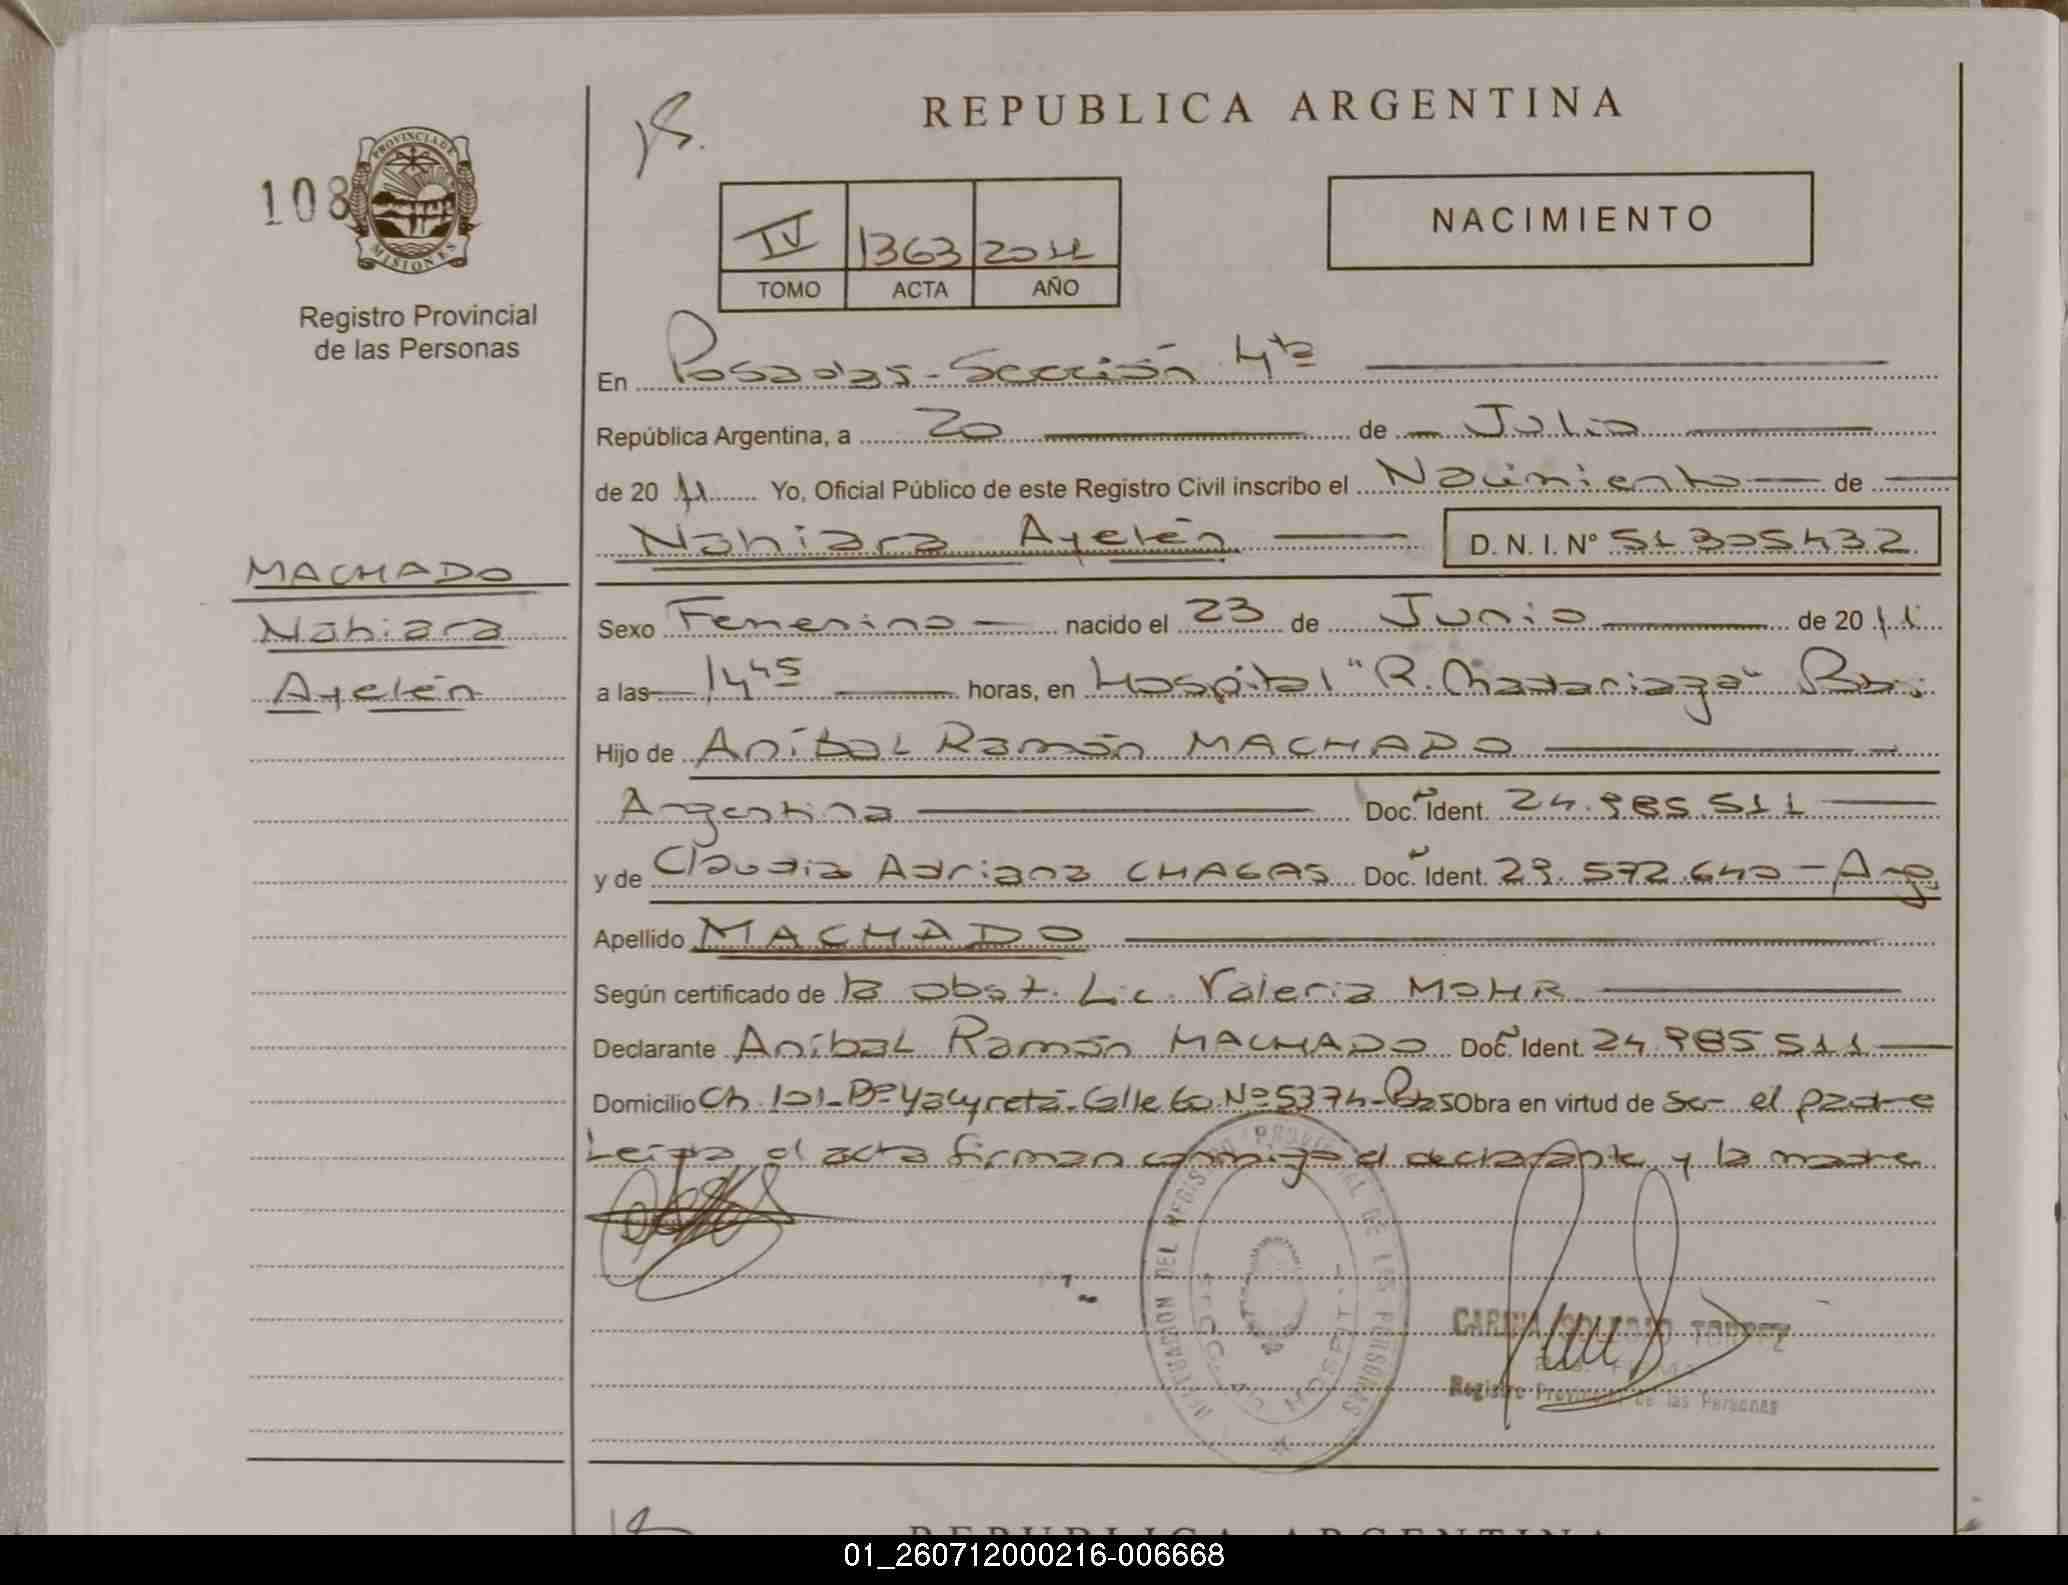 REPUBLICA ARGENTINA
108
PROVINCIA DE
MISIONES
Registro Provincial
de las Personas
NACIMIENTO
IV 1363 2011
TOMO ACTA AÑO
En Posadas - Sección 4ta
República Argentina, a 20 de Julio
de 20 11 Yo, Oficial Público de este Registro Civil inscribo el Nacimiento de
Nahiara Ayelén D. N. I. Nº 51 305432
MACHADO
Nahiara
Ayelén
Sexo Femenino nacido el 23 de Junio de 20 11
a las 14 45 horas, en Hospital "R. Madariaga" Pdas
Hijo de Aníbal Ramón MACHADO
Argentina Doc. Ident. 24.985.511
y de Claudia Adriana CHAGAS Doc. Ident. 29.572.640 - Arg
Apellido MACHADO
Según certificado de la obst. Lic. Valeria MOHR
Declarante Aníbal Ramón MACHADO Doc. Ident. 24 985 511
Domicilio Ch 101 - Bº Yacyretá - Calle 60 Nº 5374 - Pdas Obra en virtud de ser el padre
Leída el acta firman conmigo el declarante y la madre
TORREZ
Registro Provincial de las Personas
REPUBLICA ARGENTINA
01_260712000216-006668